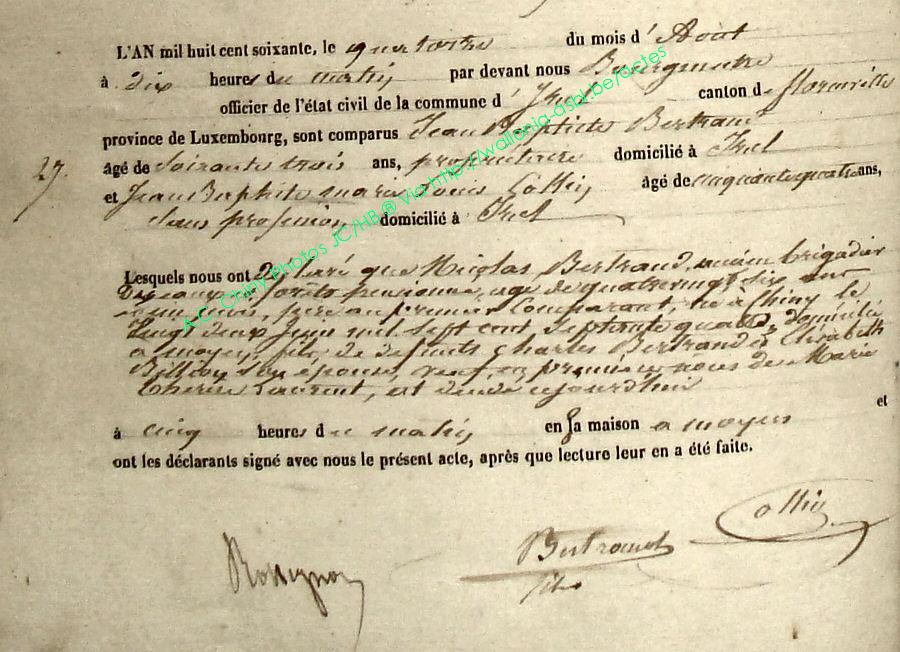 L'AN mil huit cent soixante, le quatorze du mois d' Août
à dix heures du matin, par devant nous Bourgmestre
officier de l'état civil de la commune d' Izel canton de Florenville
province de Luxembourg, sont comparus Jean Baptiste Bertrand
27.
âgé de Soixante trois ans, propriétaire domicilié à Izel
et Jean Baptiste marie Louis Collin, âgé de cinquante quatre ans,
Sans profession, domicilié à Izel
Lesquels nous ont Déclaré que Nicolas Bertrand, ancien brigadier
forêts pensionné, agé de quatre vingt six ans
un mois, père au premier Comparant, né à Chiny le
Vingt deux Juin mil sept cent septante quatre, domicilié
a moyen, fils de defunts Charles Bertrand et Elisabeth
son épouse, veuf en premières noces de Marie
Therèse Laurent, est décédé aujourd'hui
à cinq heures du matin, en sa maison a moyen et
ont les déclarants signé avec nous le présent acte, après que lecture leur en a été faite.
A-C. Chiny Photos JC/HB ® Via http://wallonia-asbl.be/actes
Collin
Bertrand
fils
Rossignon